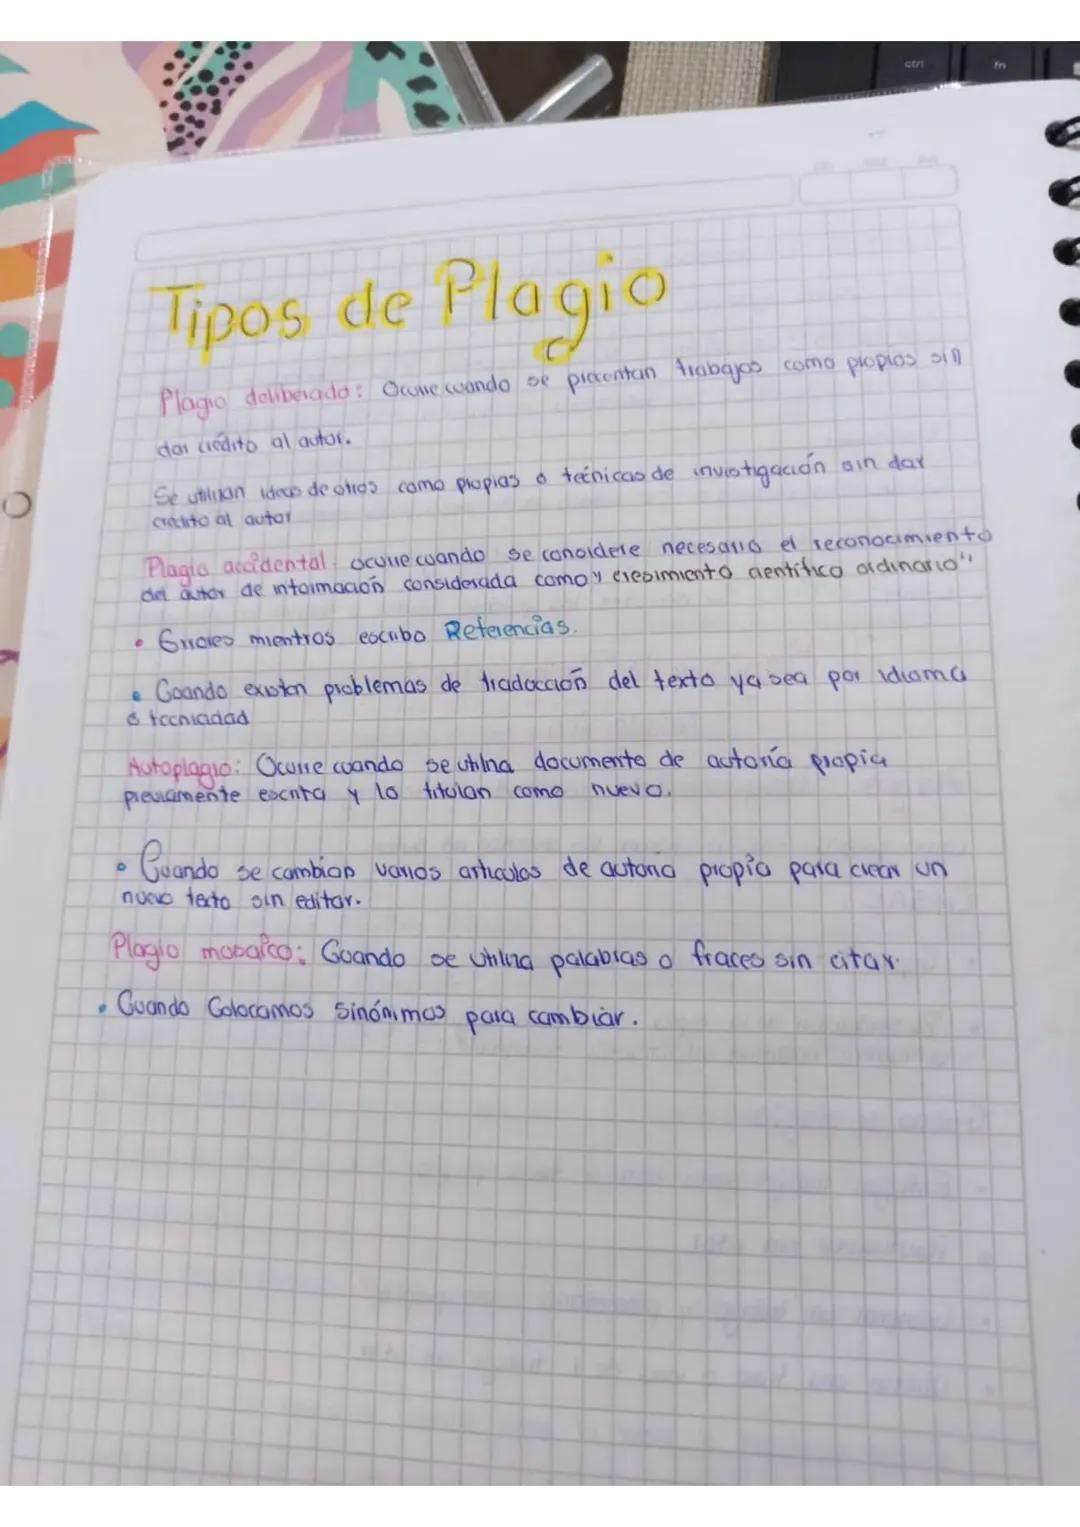 ctrl
fn
Tipos de Plagio
Plagio deliberado: Ocurre cuando se precentan trabajos como propios sin
dar crédito al autor.
Se utilizan ideas de otros como propias o técnicas de investigación sin dar
crédito al autor
Plagio accidental ocurre cuando se concidere necesario el reconocimiento
del autor de información considerada como " cresimiento cientifico ordinario"
• Errores mientras escribo Referencias.
• Cuando existen problemas de traducción del texto ya sea por idioma
o tecnicidad
Autoplagio: Ocurre cuando se utiliza documento de autoría propia
previamente escrita y lo titulan como nuevo.
• Cuando se cambian varios articulos de autoria propia para crear un
nuevo texto sin editar.
Plagio mosaico: Cuando se utiliza palabras o fraces sin citar.
• Cuando Colocamos sinónimos para cambiar.